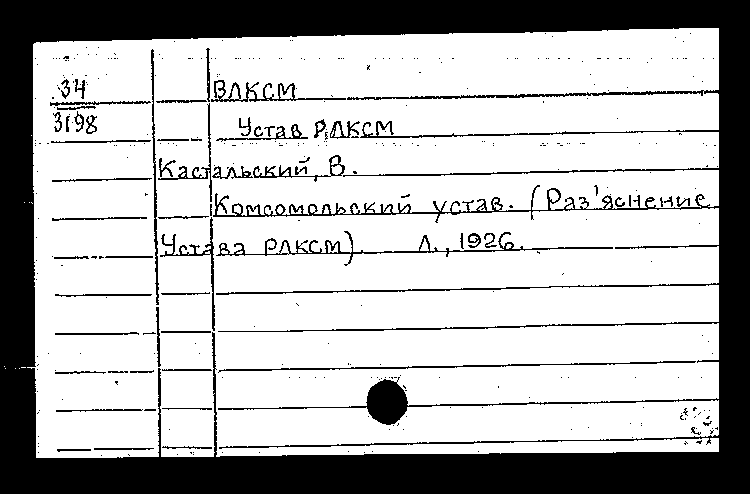 34
3198
ВЛКСМ
Устав РЛКСМ
Кастальский, В.
Комсомольский устав. (Раз'яснение
Устава РЛКСМ). Л., 1926.